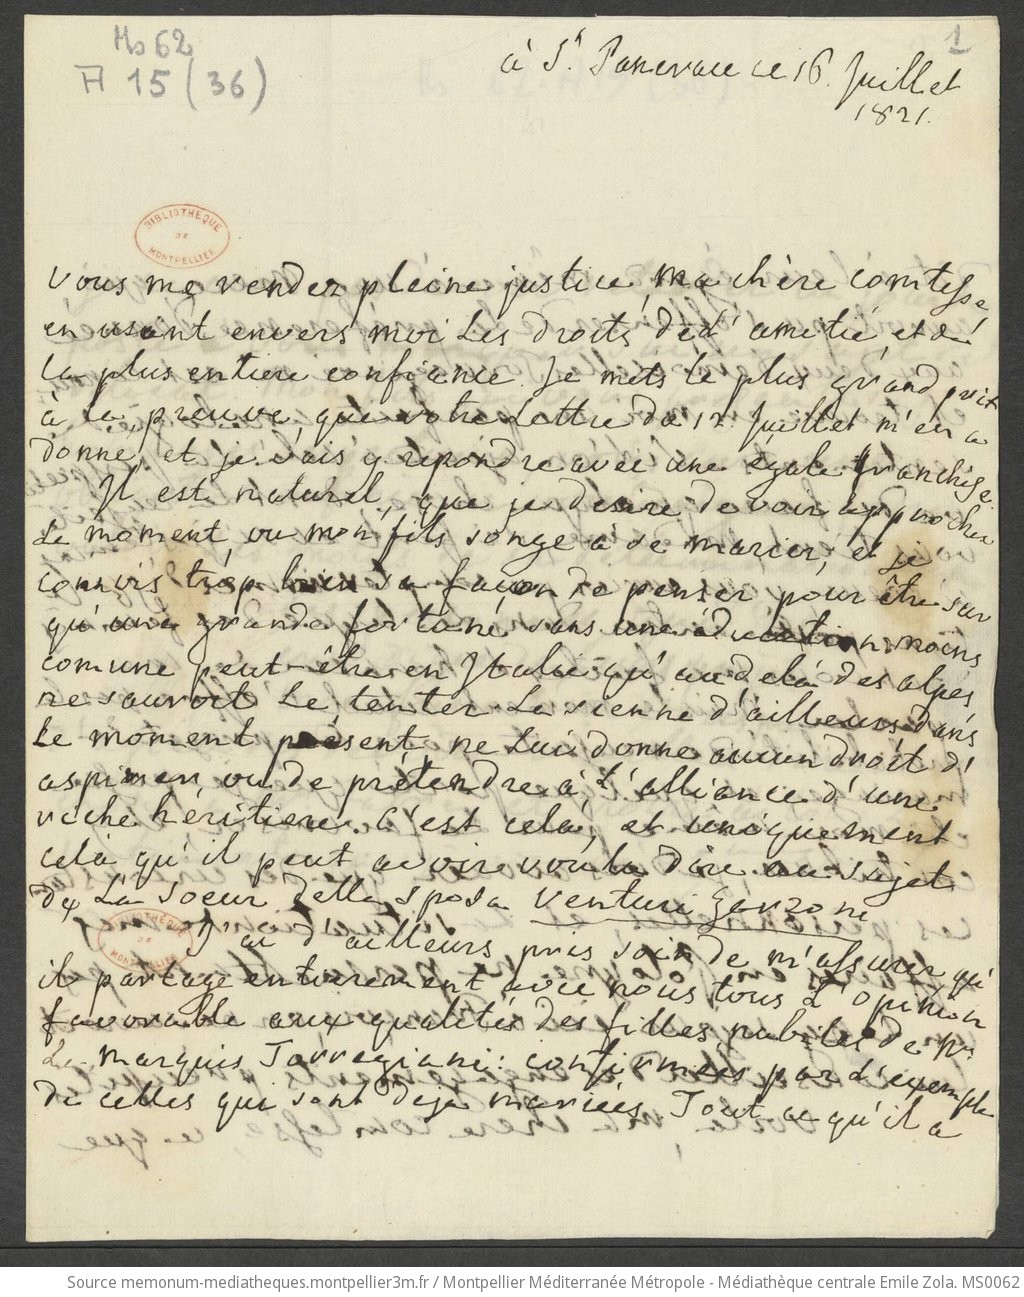 Ms 62
A 15 (36)
1
à St. Pancrace ce 16. Juillet
1821.
BIBLIOTHEQUE DE MONTPELLIER
Vous me rendez pleine justice, ma chère comtesse
en usant envers moi les droits de d' amitié, et de
la plus entiere confiance. Je mets le plus grand prix
à la preuve, que votre Lettre du 12. Juillet m'en a
donné, et je vais y repondre avec une égale franchise.
Il est naturel, que je desire de voir approcher
Le moment ou mon fils songe à se marier, et je
connois trop bien sa façon de penser pour être sur
qu'une grande fortune sans une éducation moins
comune peut-être en Italie qu'au delà des alpes
ne sauroit Le tenter. La sienne d'ailleurs dans
Le moment présent ne Lui donne aucun droit d'
aspirer ou de prétendre à L'alliance d'une
riche héritiere. C'est cela, et uniquement
cela qu'il peut avoir voulu dire au sujet
de La soeur della sposa Venturi Garzoni
BIBLIOTHEQUE DE MONTPELLIER
J'ai d'ailleurs pris soin de m'assurer qu'
il partage entierement avec nous tous L'opinion
favorable aux qualités des filles nubiles de
Le marquis Torregiani: confirmées par L'exemple
de celles qui sont deja mariées. Tout ce qu'il a
Source memonum-mediatheques.montpellier3m.fr / Montpellier Méditerranée Métropole - Médiathèque centrale Emile Zola. MS0062